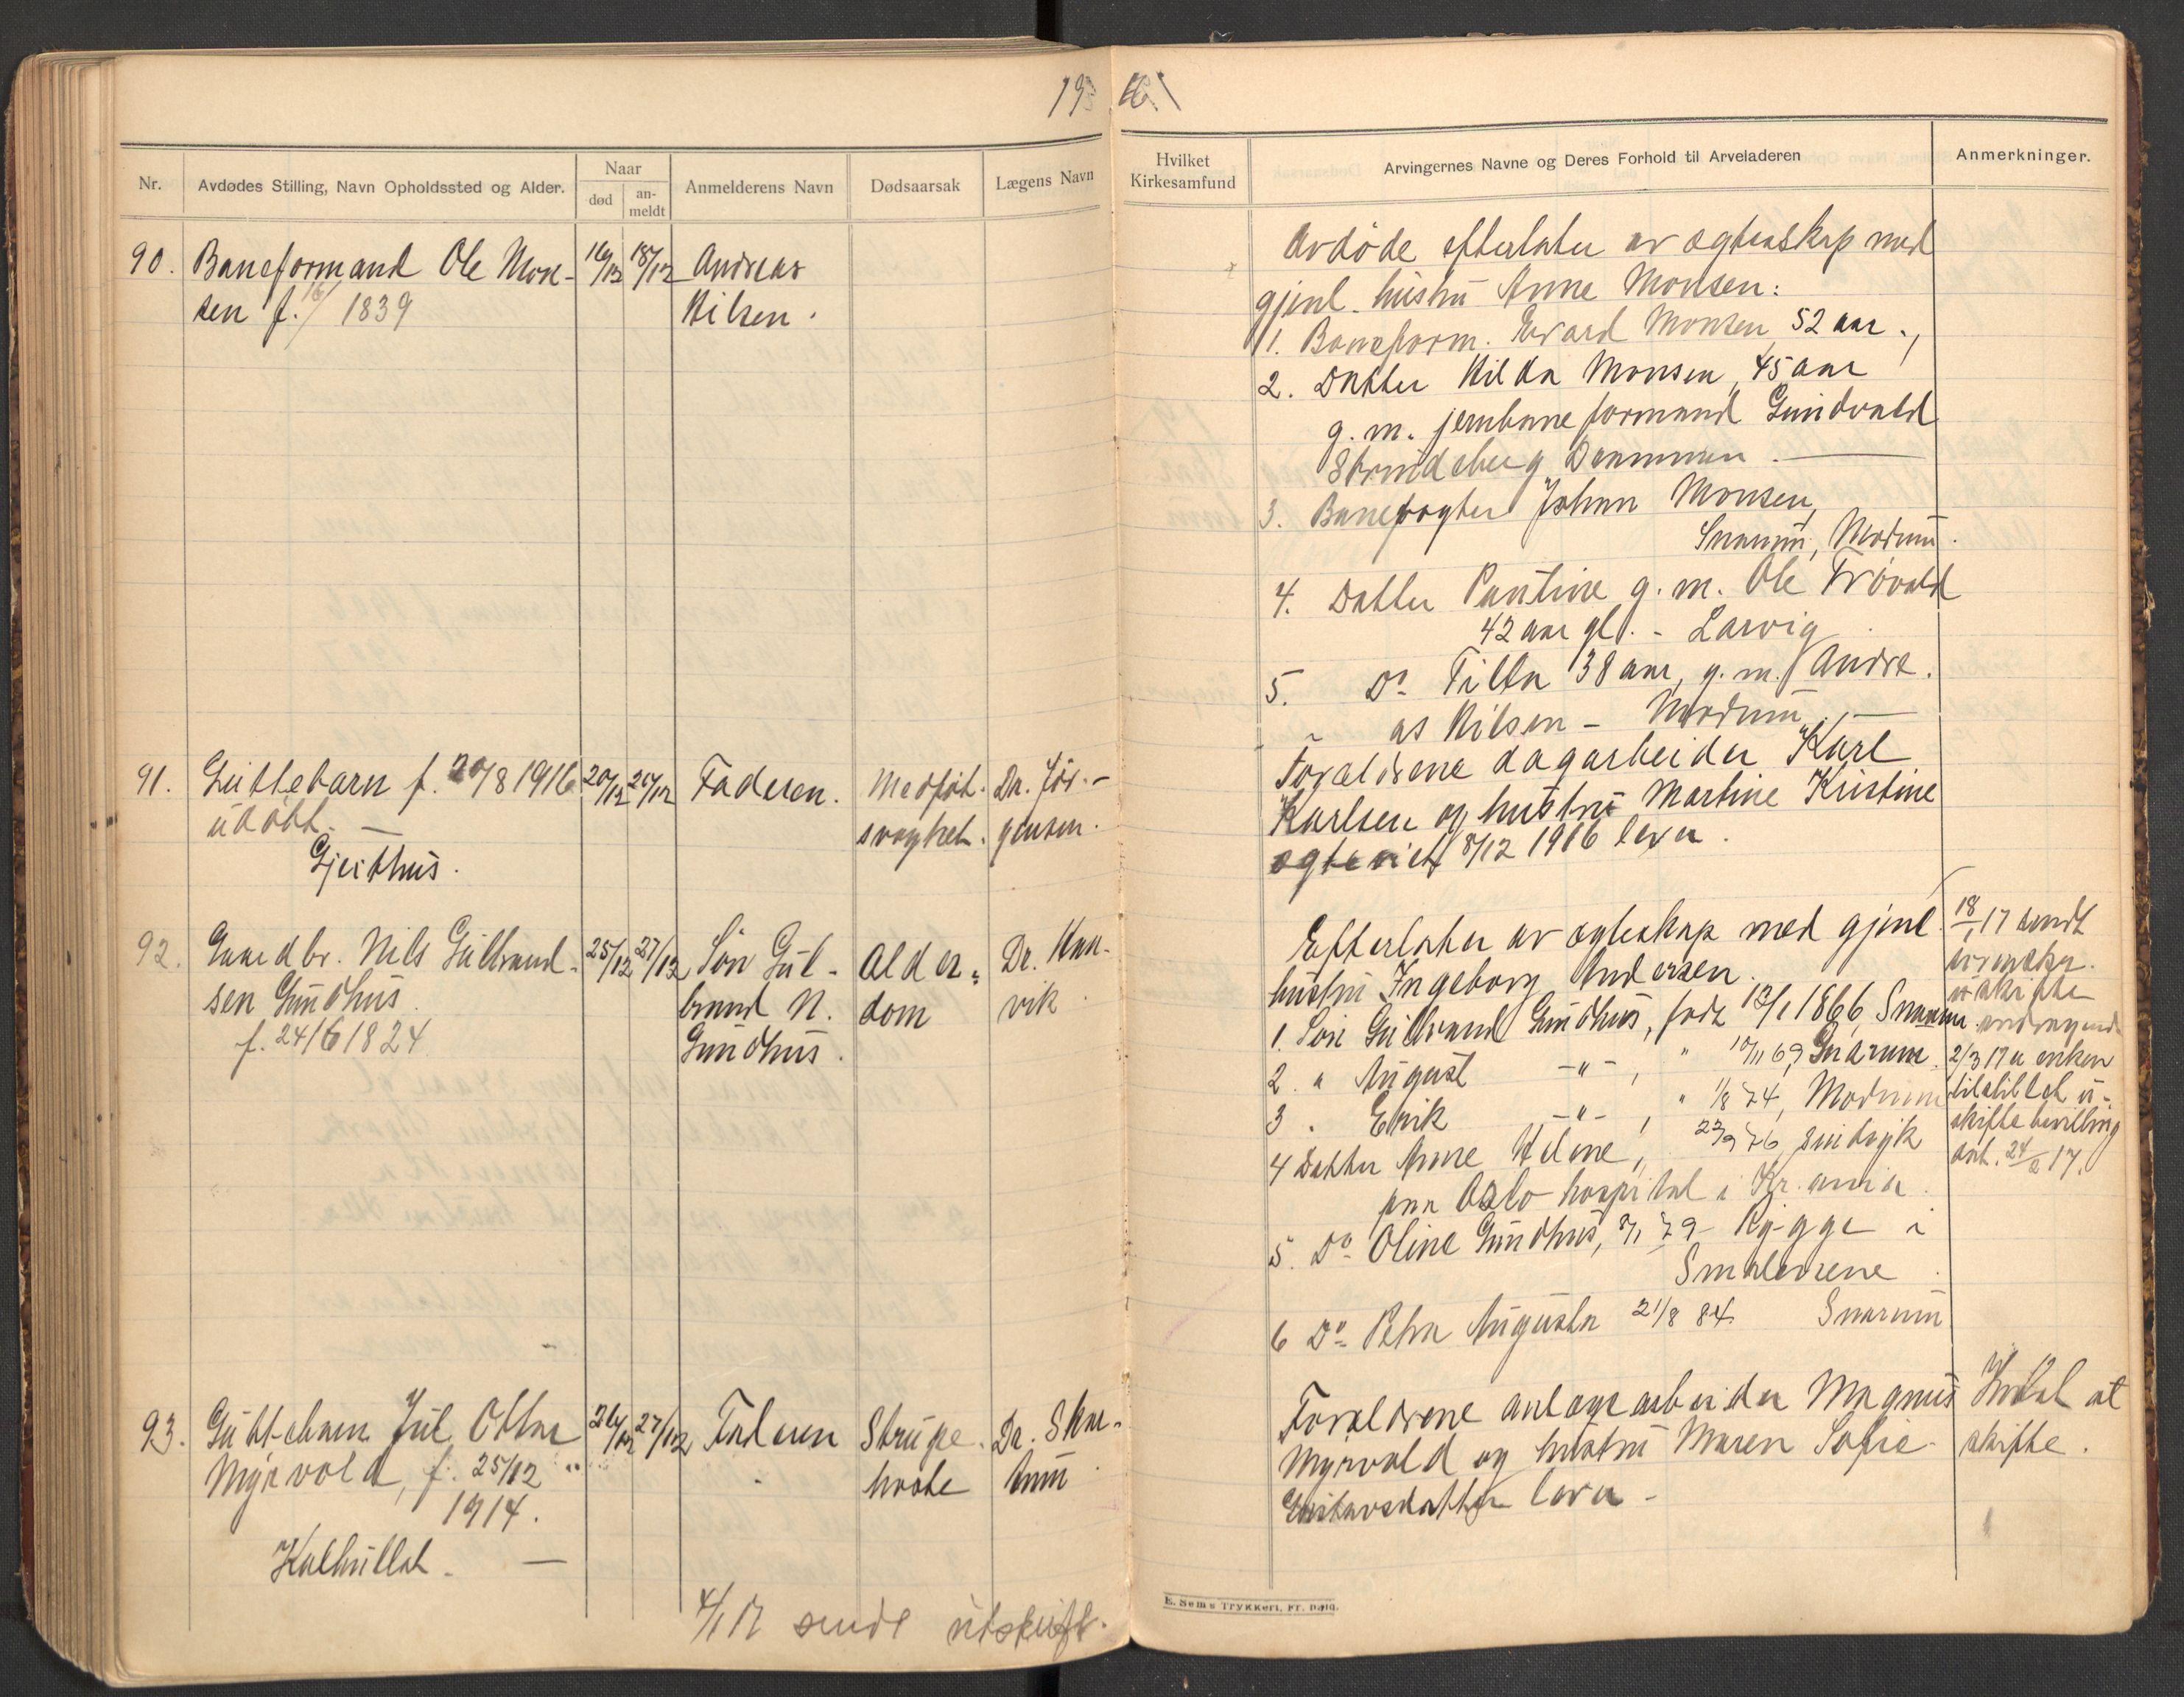 19 16
Nr.
Avdødes Stilling, Navn Opholdssted og Alder.
Naar
død
an-
meldt
Anmelderens Navn
Dødsaarsak
Lægens Navn
Hvilket
Kirkesamfund
Arvingernes Navne og Deres Forhold til Arveladeren
Anmerkninger.
90. Baneformand Ole Mon- 16/12 18/12 Andreas
sen f. 16/ 1839 Nilsen.
Avdøde efterlater av ægteskap med
gjenl. hustru Anne Monsen:
1. Baneform. Evard Monsen, 52 aar.,
2. Datter Hilda Monsen, 45 aar
g. m. jernbaneformand Gundvald
Strindsberg Drammen.
3. Banevogter Johan Monsen,
Snarum, Modum.
4. Datter Pantine g. m. Ole Trøvald
42 aar gl. - Larvig
5. Do Tilla 38 aar, g. m. Andre-
as Nilsen - Modum. -
91. Guttebarn f. 20/8 1916 20/12 20/12 Faderen. Medføt. Dr. Jør-
udøbt. - svaghet. gensen.
Gjeithus.
Forældrene dagarbeider Karl
Karlsen og hustru Martine Kristine
ægteviet 8/12 1916 lever.
92. Gaardbr. Nils Gulbrand- 25/12 27/12 Søn Gul- Alder- Dr. Kna-
sen Gundhus brand N. dom vik
f. 24/6 1824 Gundhus.
Efterlater av ægteskap med gjenl.
hustru Ingeborg Andersen.
1. Søn Gulbrand Gundhus, født 13/1 1866, Snarum
2. " August -"-, " 10/11 69, Snarum
3. Erik -"-, " 1/8 74, Modum
4 Datter Anne Helene, 22/9 76, sindsyk
paa Oslo hospital i Kr.ania.
5. Do Oline Gundhus, 8/1 79 Rygge i
Smalenene
6 Do Petra Augusta 21/8 84. Snarum
18/1 17 sendt
uskifte
andragende
2/3 17 er enken
tilstillet u-
skiftebevilling
dat. 24/2 17.
93. Guttebarn Jul Ottar 26/12 27/12 Faderen Strupe- Dr. Skar-
Myrvold, f. 25/12 hoste num
1914.
Kalhullet. -
Forældrene anlægsarbeider Magnus
Myrvold og hustru Maren Sofie
Gustavsdatter lever -
Intet at
skifte.
4/1 17 sendt utskrift.
E. Sems Trykkeri, Fr. hald.